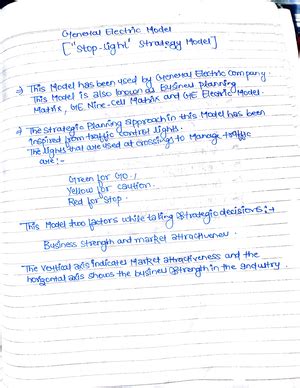 General Electric Model
["Stop-Light" Strategy Model]
⇒ This Model has been used by General Electric company.
This Model is also known as Business planning
Matrix, GE Nine-Cell Matrix and GE Electric Model.
⇒ The Strategic Planning approach in this Model has been
inspired from traffic control lights.
The lights that are used at crossings to manage traffic
are :-
Green for GO.
Yellow for caution.
Red for stop.
This Model two factors while taking Strategic decisions :-
Business strength and market attractiveness.
The vertical axis indicates Market attractiveness and the
horizontal axis shows the business strength in the industry.